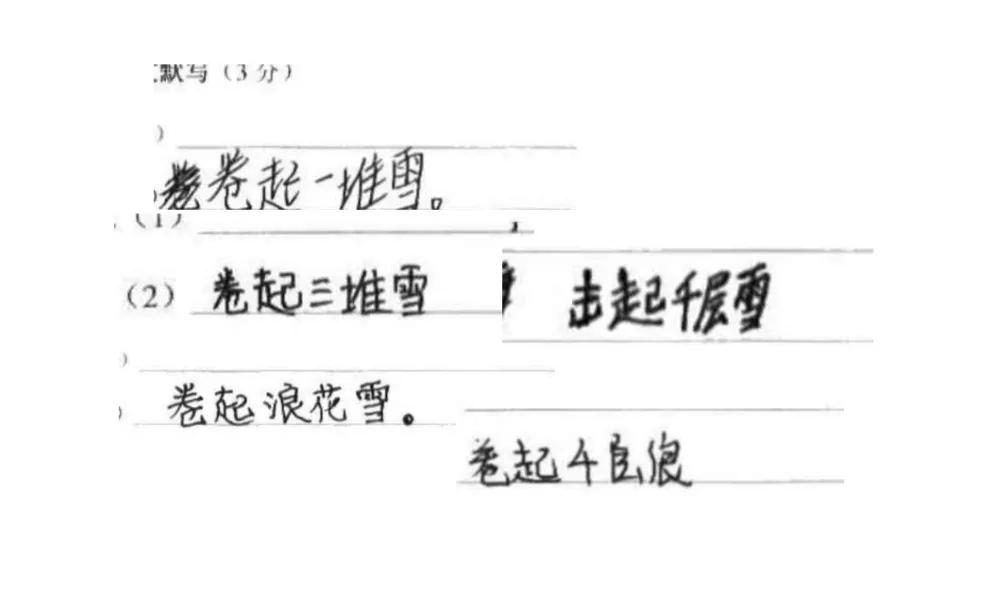 默写（3分）
）
卷起一堆雪。
（1）
（2） 卷起三堆雪
击起千层雪
）
卷起浪花雪。
卷起千层浪